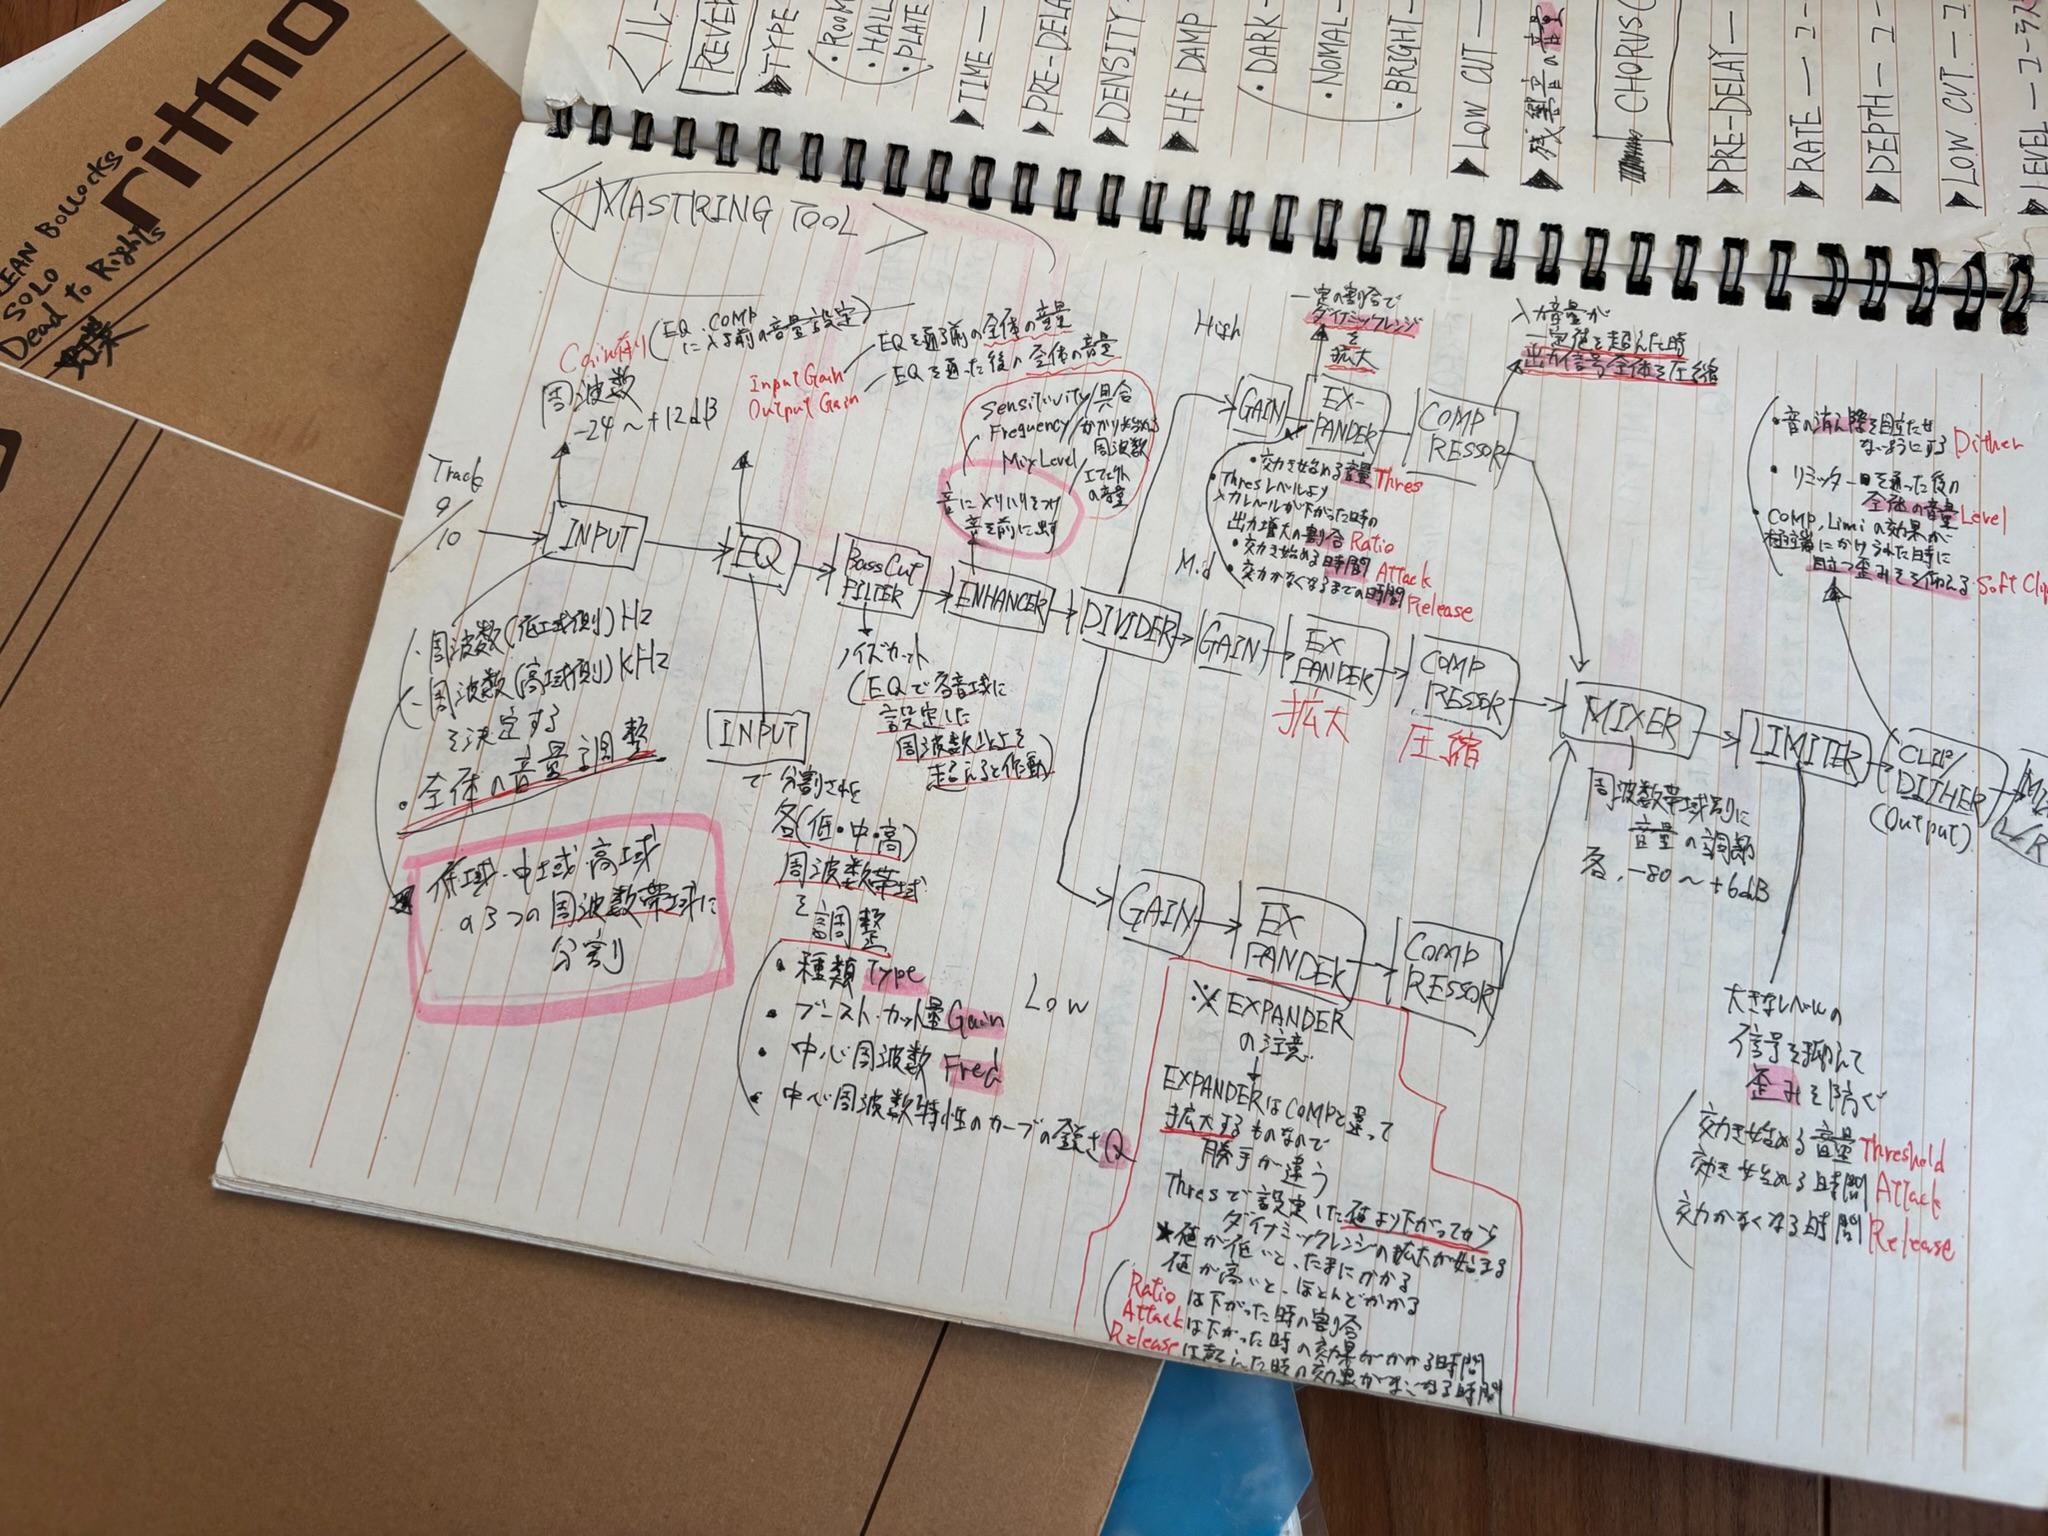 REVER
▶TYPE
・ROOM
・HALL
・PLATE
▶TIME—
▶PRE-DELA
▶DENSITY-
▶HF DAMP
・DARK-
・NOMAL-
・BRIGHT-
▶LOW CUT—
▶残響音の音
CHORUS
▶PRE-DELAY—
▶RATE—
▶DEPTH—
▶LOW CUT—
▶LEVEL—
ritmo
BOLLOCKS
SOLO
Dead to Rights
MASTRING TOOL
(EQ・COMP
に入る前の音量設定)
周波数
-24～+12dB
Input Gain
EQを通る前の全体の音量
Output Gain
EQを通った後の全体の音量
Sensitivity/具合
Frequency/かかり始める
周波数
Mix Level
音にメリハリをつけ
音を前に出す
Track
9/10
INPUT
EQ
Bass Cut
FILTER
ENHANCER
DIVIDER
・周波数(低域側)Hz
・周波数(高域側)KHz
を決定する
・全体の音量調整
低域・中域・高域
の3つの周波数帯域に
分割
INPUT
で分割された
各(低・中・高)
周波数帯域
を調整
・種類 Type
・ブースト・カット量 Gain
・中心周波数 Freq
・中心周波数特性のカーブの鋭さ Q
ノイズカット
(EQで各音域に
設定した
周波数以上を
超えると作動)
High
一定の割合で
ダイナミックレンジ
を
拡大
入力音量が
一定値を超えた時
出力信号全体を圧縮
GAIN
EX-
PANDER
COMP
RESSOR
・効き始める音量 Thres
・Thresレベルより
入力レベルが下がった時の
出力増大の割合 Ratio
・効き始める時間 Attack
・効かなくなるまでの時間 Release
Mid
GAIN
EX
PANDER
COMP
RESSOR
拡大
圧縮
Low
GAIN
EX
PANDER
COMP
RESSOR
※EXPANDER
の注意
EXPANDERはCOMPと違って
拡大するものなので
勝手が違う
Thresで設定した値より下がってから
ダイナミックレンジの拡大が始まる
★値が低いと、たまにかかる
値が高いと、ほとんどかかる
Ratioは下がった時の割合
Attackは下がった時の効果がかかる時間
Releaseは超えた時の効果がなくなる時間
MIXER
周波数帯域別に
音量の調節
各、-80～+6dB
LIMITER
大きなレベルの
信号を抑えて
歪みを防ぐ
効き始める音量 Threshold
効き始める時間 Attack
効かなくなる時間 Release
CLIP/
DITHER
(Output)
L/R
・音の消え際を目立たせ
ないようにする Dither
・リミッターを通った後の
全体の音量 Level
・COMP, Limiの効果が
極端にかけられた時に
目立つ歪みを抑える Soft Clip